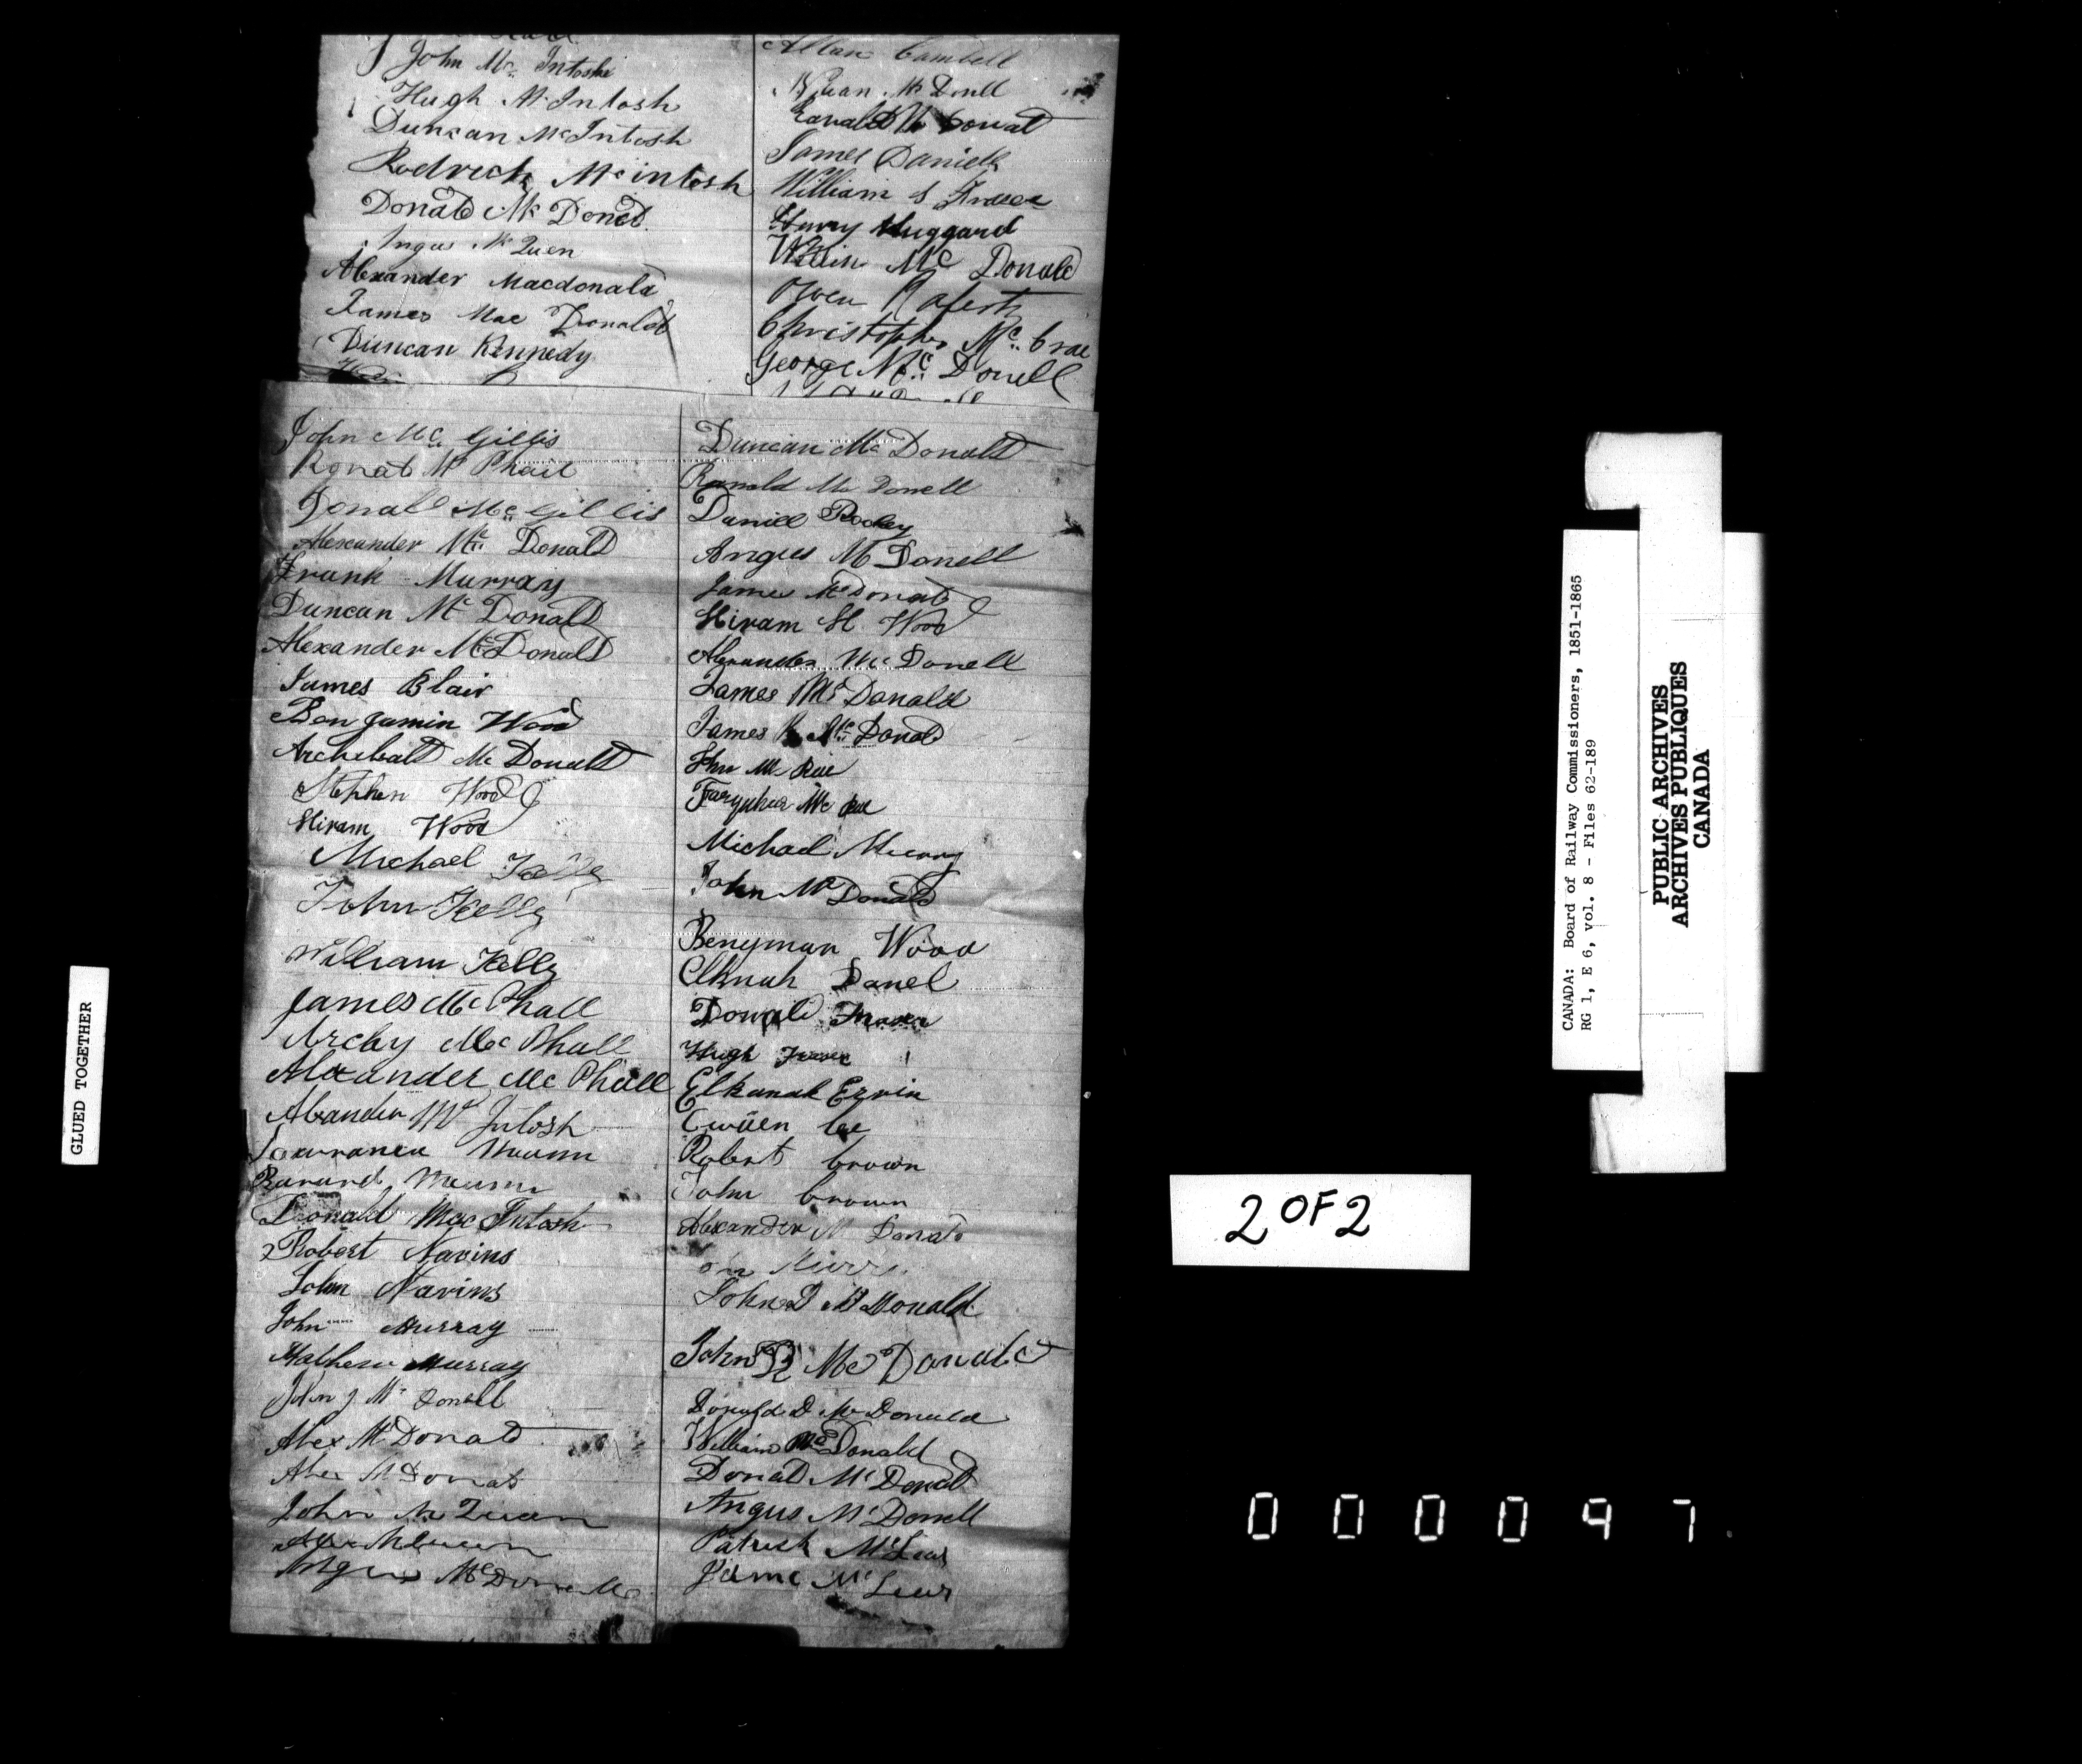 John Mc Intoshe
Hugh Mc Intosh
Duncan McIntosh
Rodrick Mc intosh
Donald Mc Doned
Angus Mc Quen
Alexander Macdonald
James Mac Donald
Duncan Kennedy
Allan Cambell
Mc Donell
James Daniels
William S Fraser
Henry Huggard
Mc Donald
Owen
Christopher Mc Crae
George Mc Donell
John Mc Gillis
Ronald Mc Phail
Donald Mc Gillis
Alexander Mc Donald
Frank Murray
Duncan Mc Donald
Alexander McDonald
James Blair
Benjamin Wood
Archebald Mc Donald
Stephen Wood
Hiram Wood
Michael Kelly
John Kelly
William Kelly
James Mc Phall
Archy Mc Phall
Alexander Mc Phall
Alexander Mc Intosh
Donald MacIntosh
Robert Navins
John Navins
John Murray
Mathew Murray
John J Mc Donell
Alex McDonald
Alex McDonald
John
Angus
Duncan Mc Donald
Ranald Mc Donell
Daniel
Angus Mc Donell
James McDonald
Hiram H Wood
Alexander Mc Donell
James Mc Donald
James Mc Donald
John Mc Rae
Farquhar Mc Rae
Michael
John Mc Donald
Benyman Wood
Elknah Danel
Donald Fraser
Hugh Fraser
Elkanah Ervin
lee
Robert brown
John brown
Alexander Mc Donald
John D McDonald
John R McDonald
Donald D Mc Donald
William McDonald
Donald Mc Donald
Angus McDonell
Patrick
Jame
GLUED TOGETHER
CANADA: Board of Railway Commissioners, 1851-1865
RG 1, E 6, vol. 8 - Files 62-189
PUBLIC ARCHIVES
ARCHIVES PUBLIQUES
CANADA
2 OF 2
000097